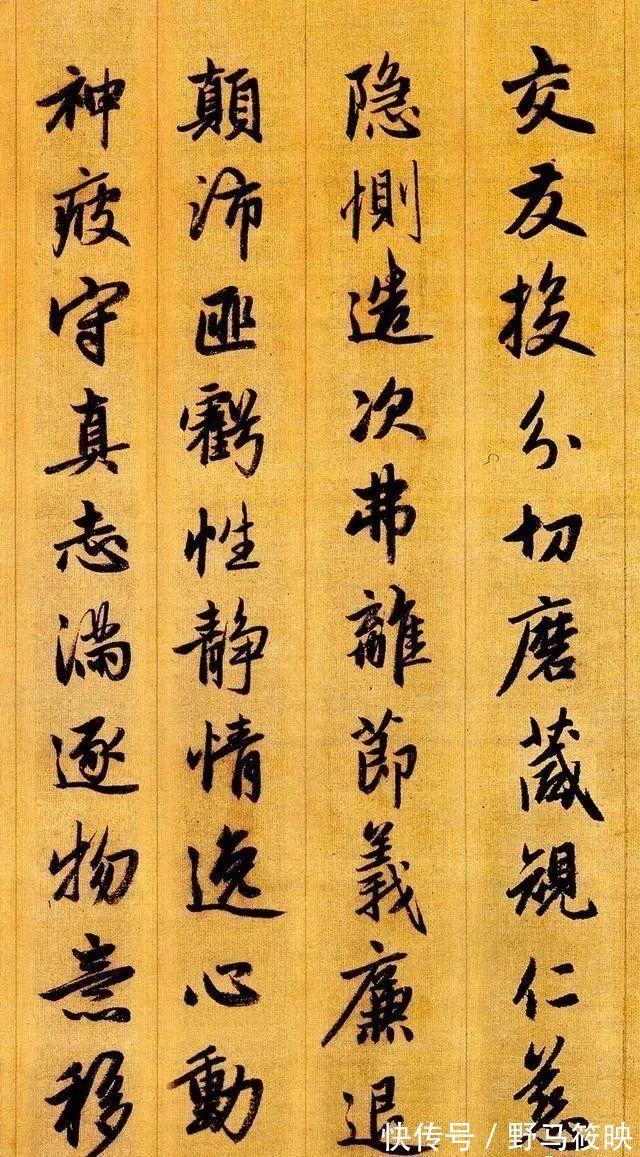 交友投分切磨箴規仁慈
隐惻造次弗離節義廉退
顛沛匪虧性静情逸心動
神疲守真志滿逐物意移
快传号 / 野马筱映